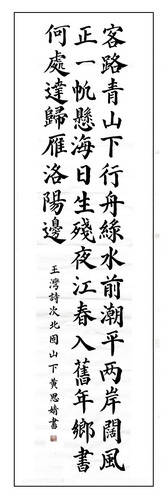 客路青山下行舟綠水前潮平两岸闊風
正一帆懸海日生殘夜江春入舊年鄉書
何處達歸雁洛陽邊
王灣詩次北固山下黃思婧書